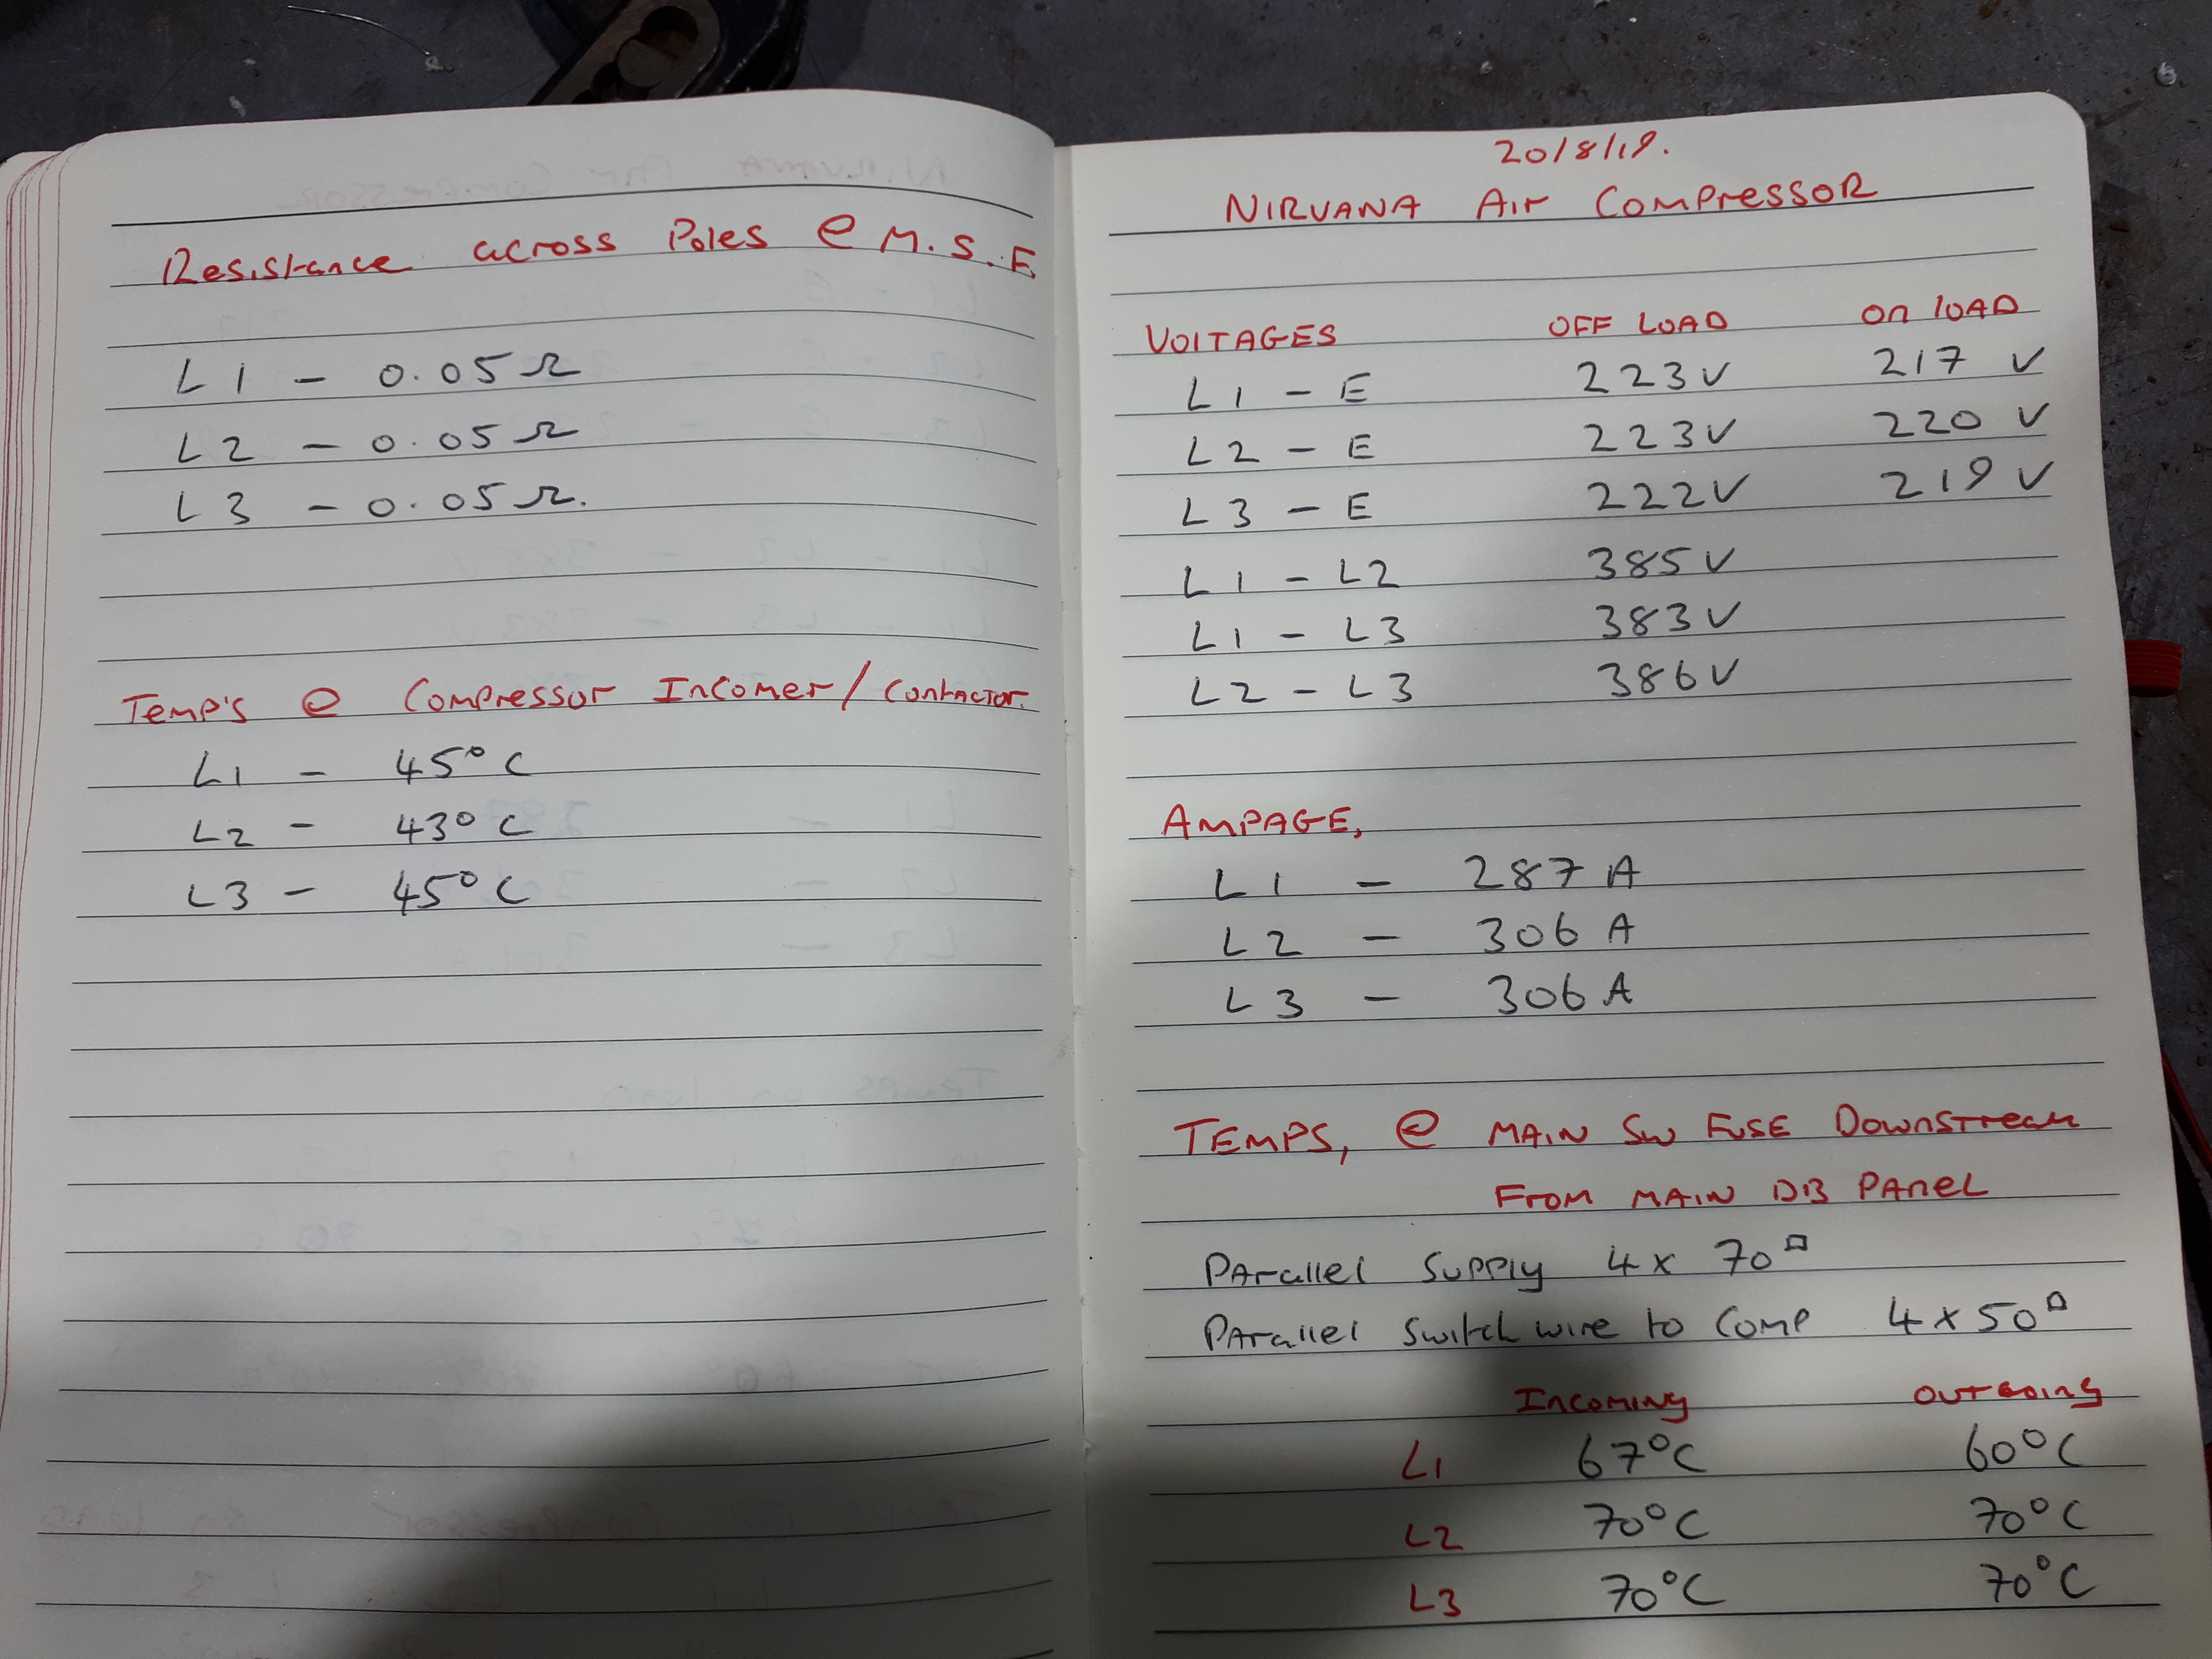 Resistance across Poles @ M.S.F.
L1 - 0.05Ω
L2 - 0.05Ω
L3 - 0.05Ω.
Temp's @ Compressor Incomer/Contactor.
L1 - 45°C
L2 - 43°C
L3 - 45°C
20/8/19.
NIRVANA Air Compressor
VOLTAGES OFF LOAD On LOAD
L1 - E 223V 217 V
L2 - E 223V 220 V
L3 - E 222V 219 V
L1 - L2 385V
L1 - L3 383V
L2 - L3 386V
AMPAGE,
L1 - 287A
L2 - 306A
L3 - 306A
TEMPS, @ MAIN SW FUSE Downstream
From MAIN DB PANEL
Parallel Supply 4x 70□
Parallel Switch wire to Comp 4x50□
Incoming Outgoing
L1 67°C 60°C
L2 70°C 70°C
L3 70°C 70°C